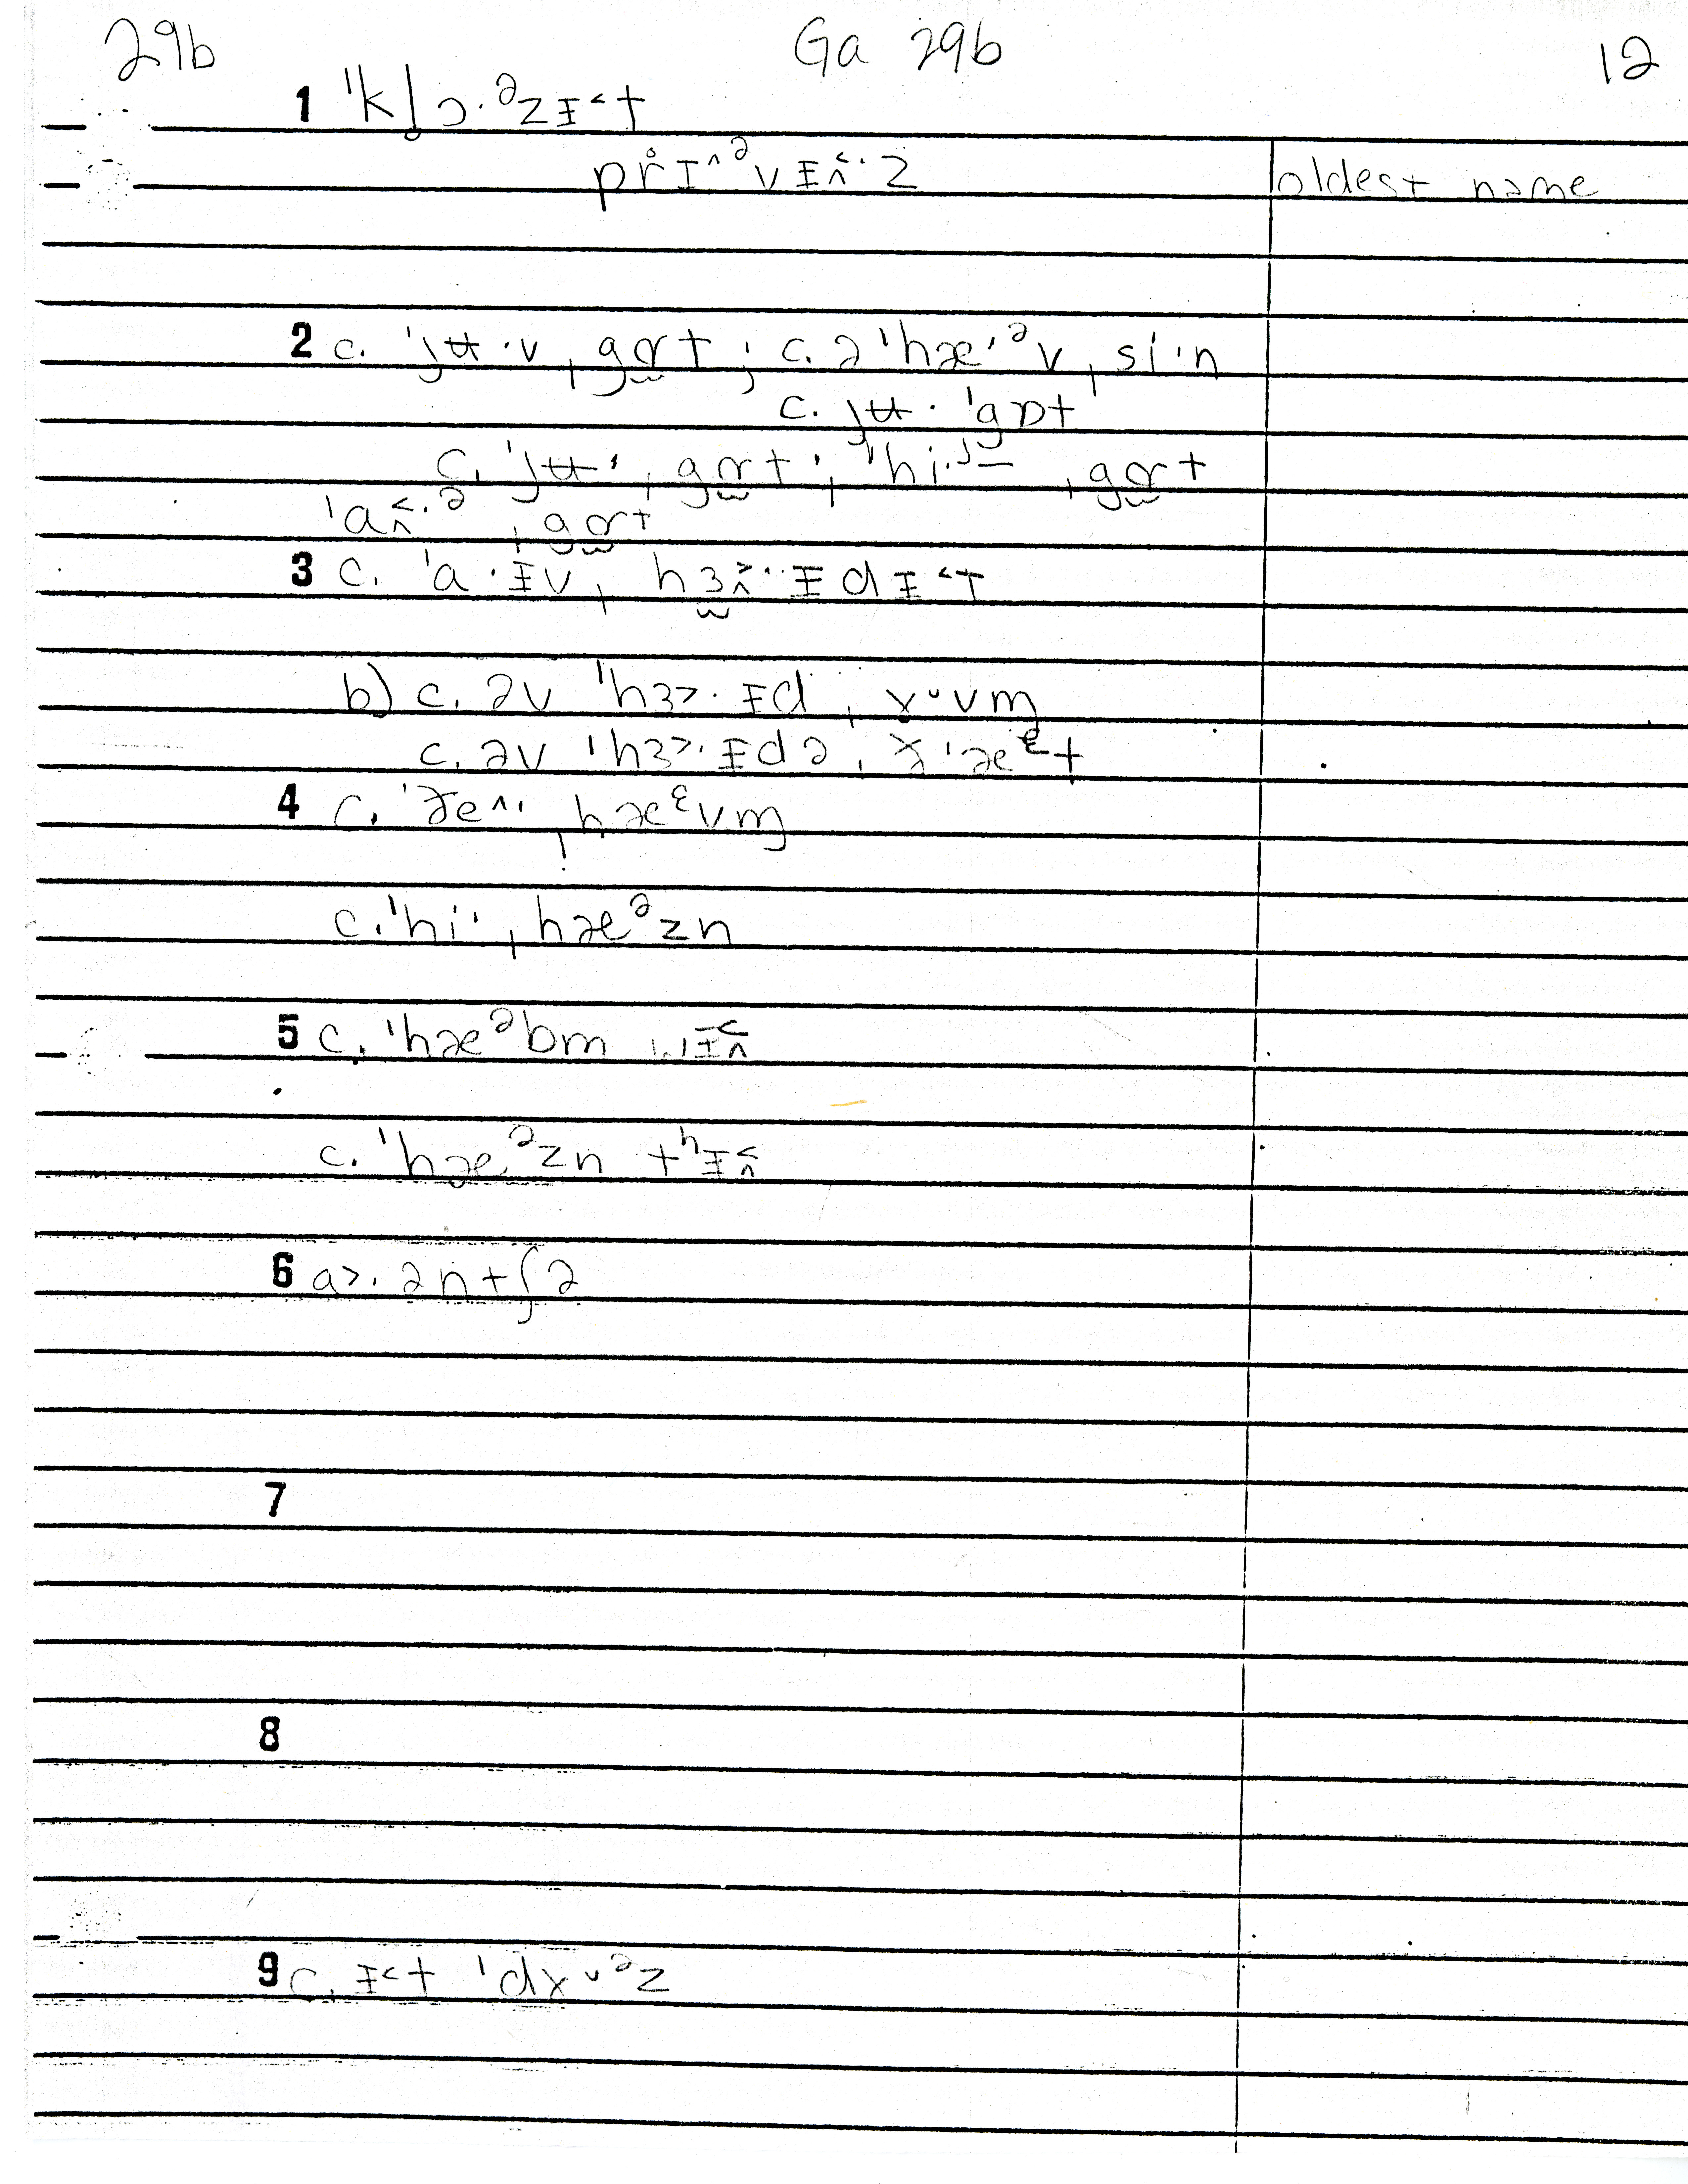 29b Ga 29b 12
1 ˈkl̥ɔ·ᵊzɪ˂t
pr̥ɪ^ᵊvɪ˄˂·z oldest name
2 c. ˈjʉ·v ˌgɑt ; c. ə ˈhæ·ᵊv ˌsi·n
c. jʉ· ˈgɒt
c. ˈjʉ· ˌgɑt ; ˈhi·j– ˌgɑt
ˈa˄˂·ə ˌgɑt
3 c. ˈa·ɪv ˌhɜ˄˃·ɪdɪ˂t
b) c. əv ˈhɜ˃·ɪd ˌɤ·vm̩
c. əv ˈhɜ˃·ɪdə ˌɤ·æᵋt
4 c. ˈðe^· ˌhæᵋvm̩
c. ˈhi· ˌhæᵊzn
5 c. ˈhæᵊbm wɪ˄˂
c. ˈhæᵊzn tʰɪ˄˂
6 a˃·əntʃə
7
8
9 c. ɪ˂t ˈdɤᵊz